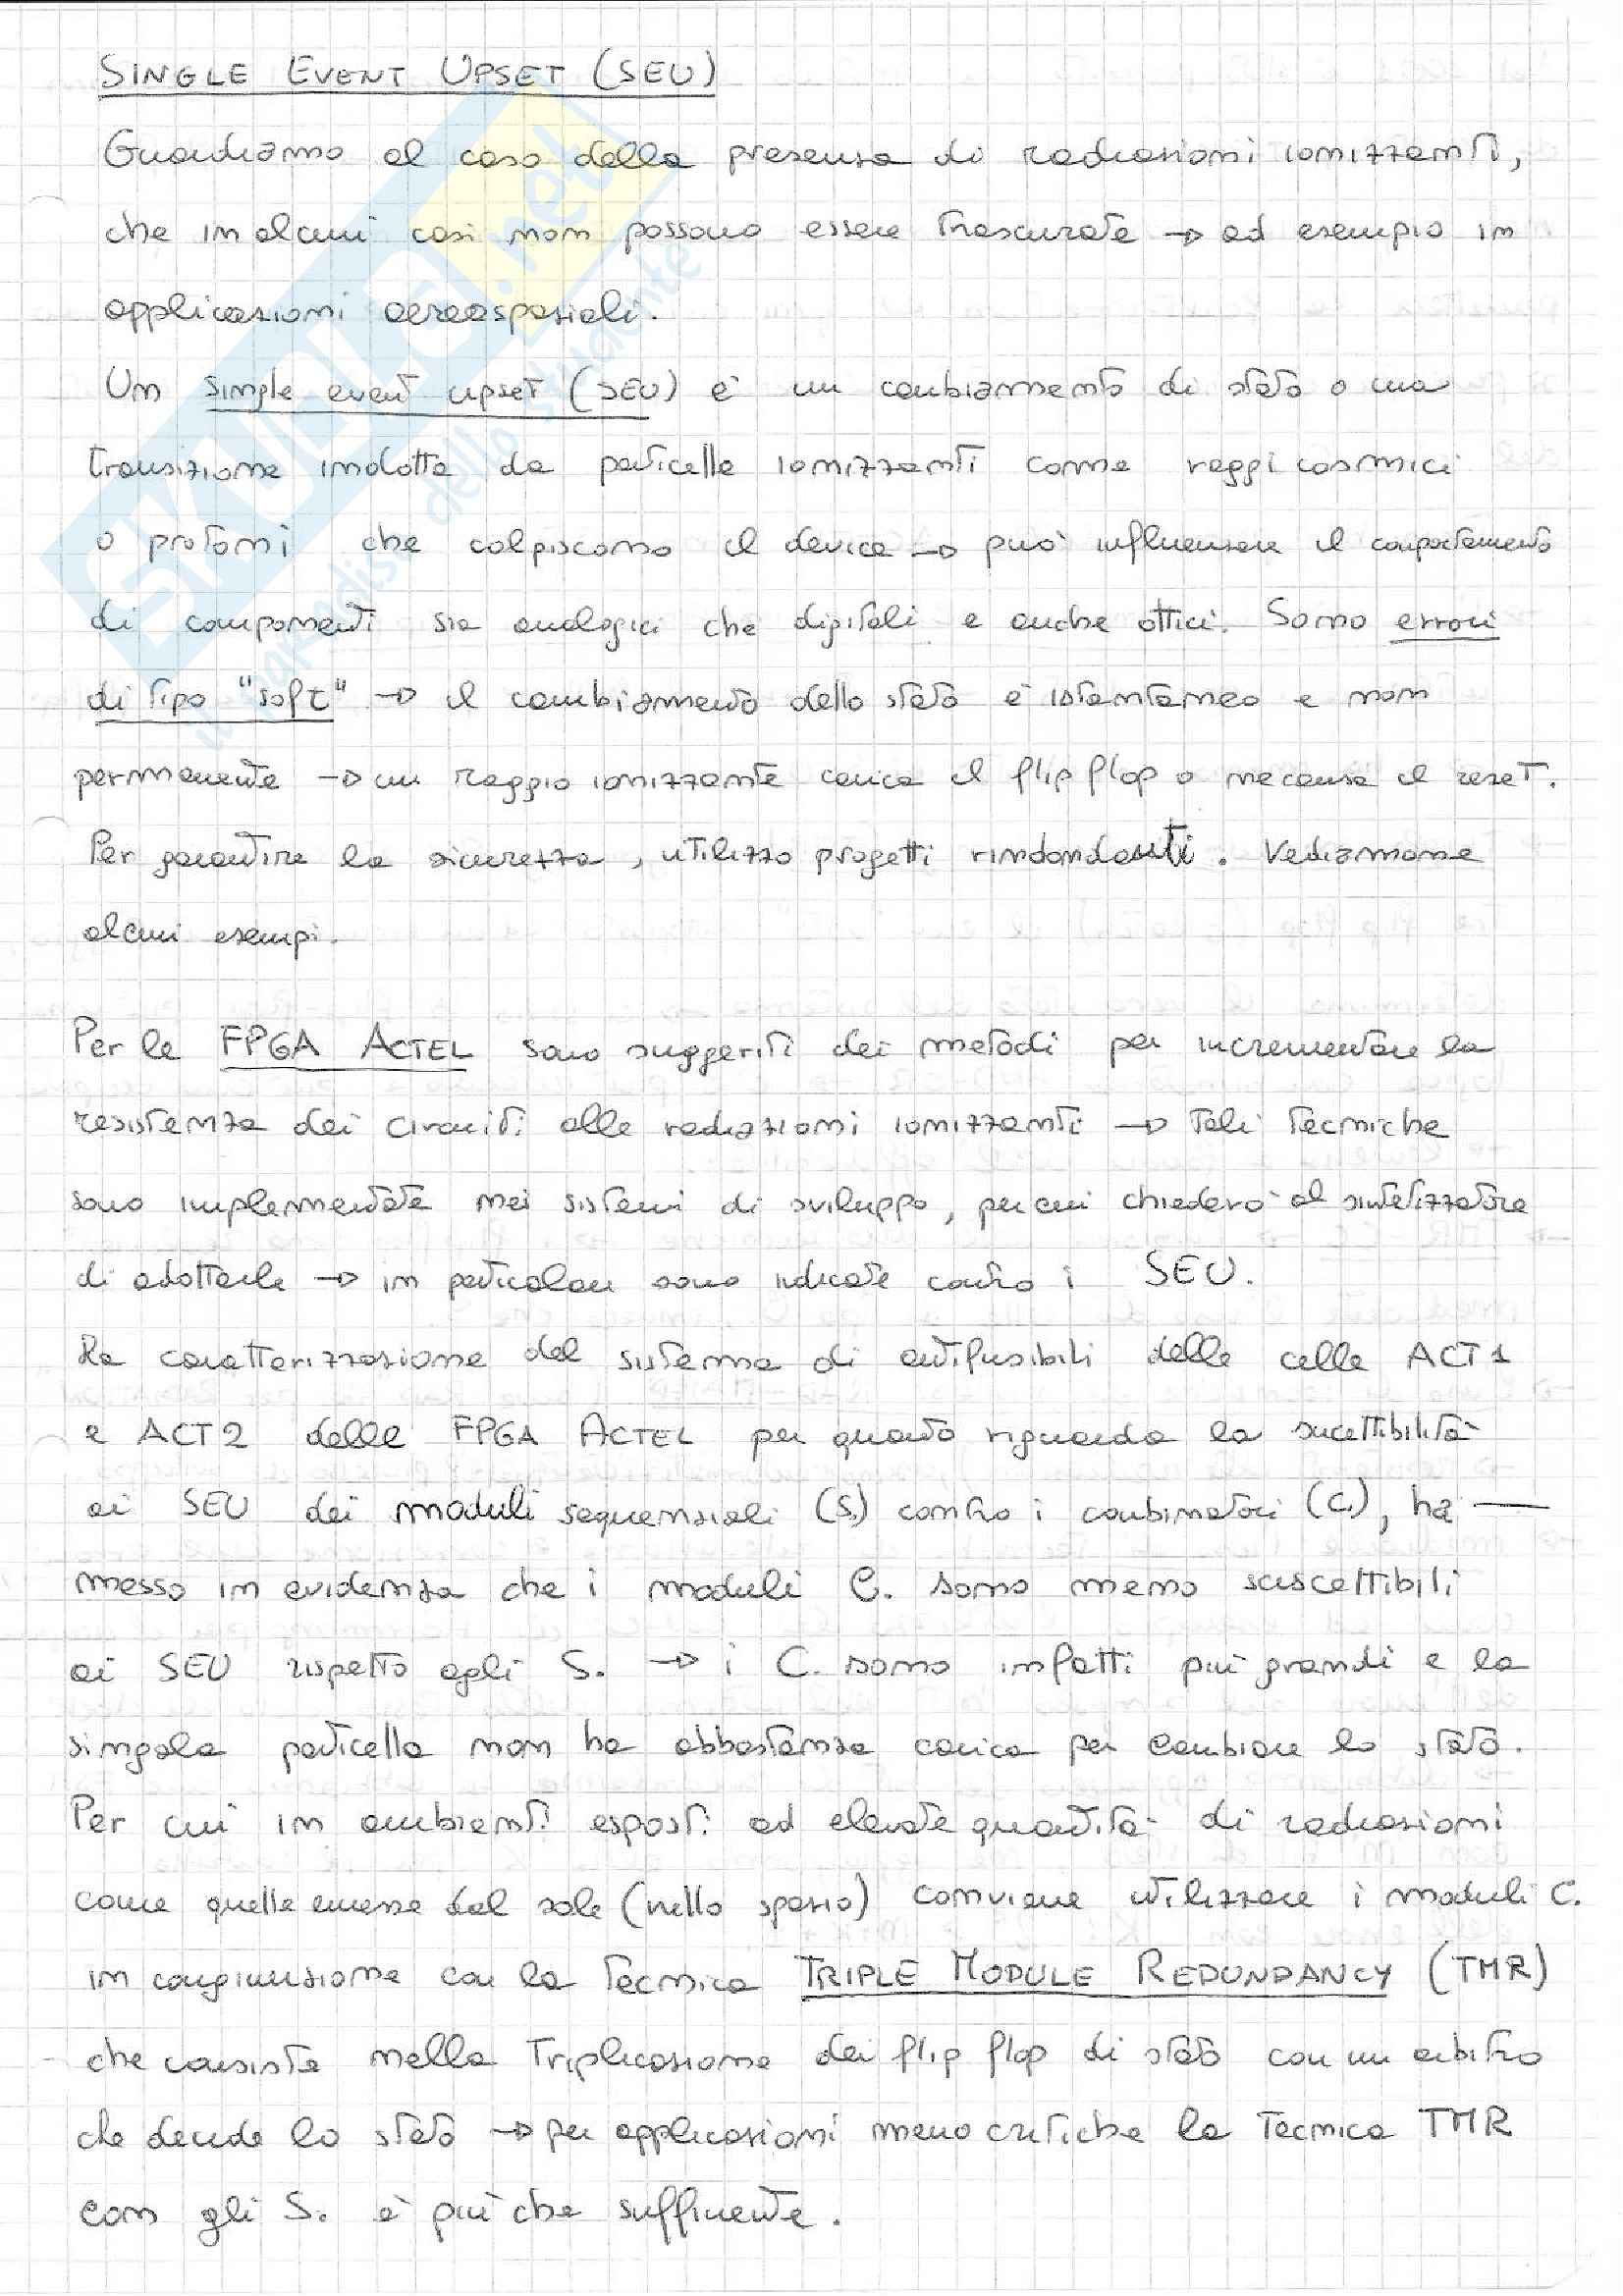 SINGLE EVENT UPSET (SEU)
Guardiamo al caso della presenza di radiazioni ionizzanti,
che in alcuni casi non possono essere trascurate → ad esempio in
applicazioni aereospaziali.
Un single event upset (SEU) è un cambiamento di stato o una
transizione indotta da particelle ionizzanti come raggi cosmici
o protoni che colpiscono il device → può influenzare il comportamento
di componenti sia analogici che digitali e anche ottici. Sono errori
di tipo "soft" → il cambiamento dello stato è istantaneo e non
permanente → un raggio ionizzante carica il flip flop o ne causa il reset.
Per garantire la sicurezza, utilizzo progetti rindondanti. Vediamone
alcuni esempi.
Per le FPGA ACTEL sono suggeriti dei metodi per incrementare la
resistenza dei circuiti alle radiazioni ionizzanti → Tali tecniche
sono implementate nei sistemi di sviluppo, per cui chiederò al sintetizzatore
di adottarle → in particolare sono indicate contro i SEU.
La caratterizzazione del sistema di antifusibili delle celle ACT1
e ACT2 delle FPGA ACTEL per quanto riguarda la sucettibilità
ai SEU dei moduli sequenziali (S.) contro i combinatori (C.), ha
messo in evidenza che i moduli C. sono meno suscettibili
ai SEU rispetto agli S. → i C. sono infatti più grandi e la
singola particella non ha abbastanza carica per cambiare lo stato.
Per cui in ambienti esposti ad elevate quantità di radiazioni
come quelle emesse dal sole (nello spazio) conviene utilizzare i moduli C.
in congiunzione con la tecnica TRIPLE MODULE REDUNDANCY (TMR)
che consiste nella triplicazione dei flip flop di stato con un arbitro
che decide lo stato → per applicazioni meno critiche la tecnica TMR
con gli S. è più che sufficiente.
SKUOLA.net
il paradiso dello studente